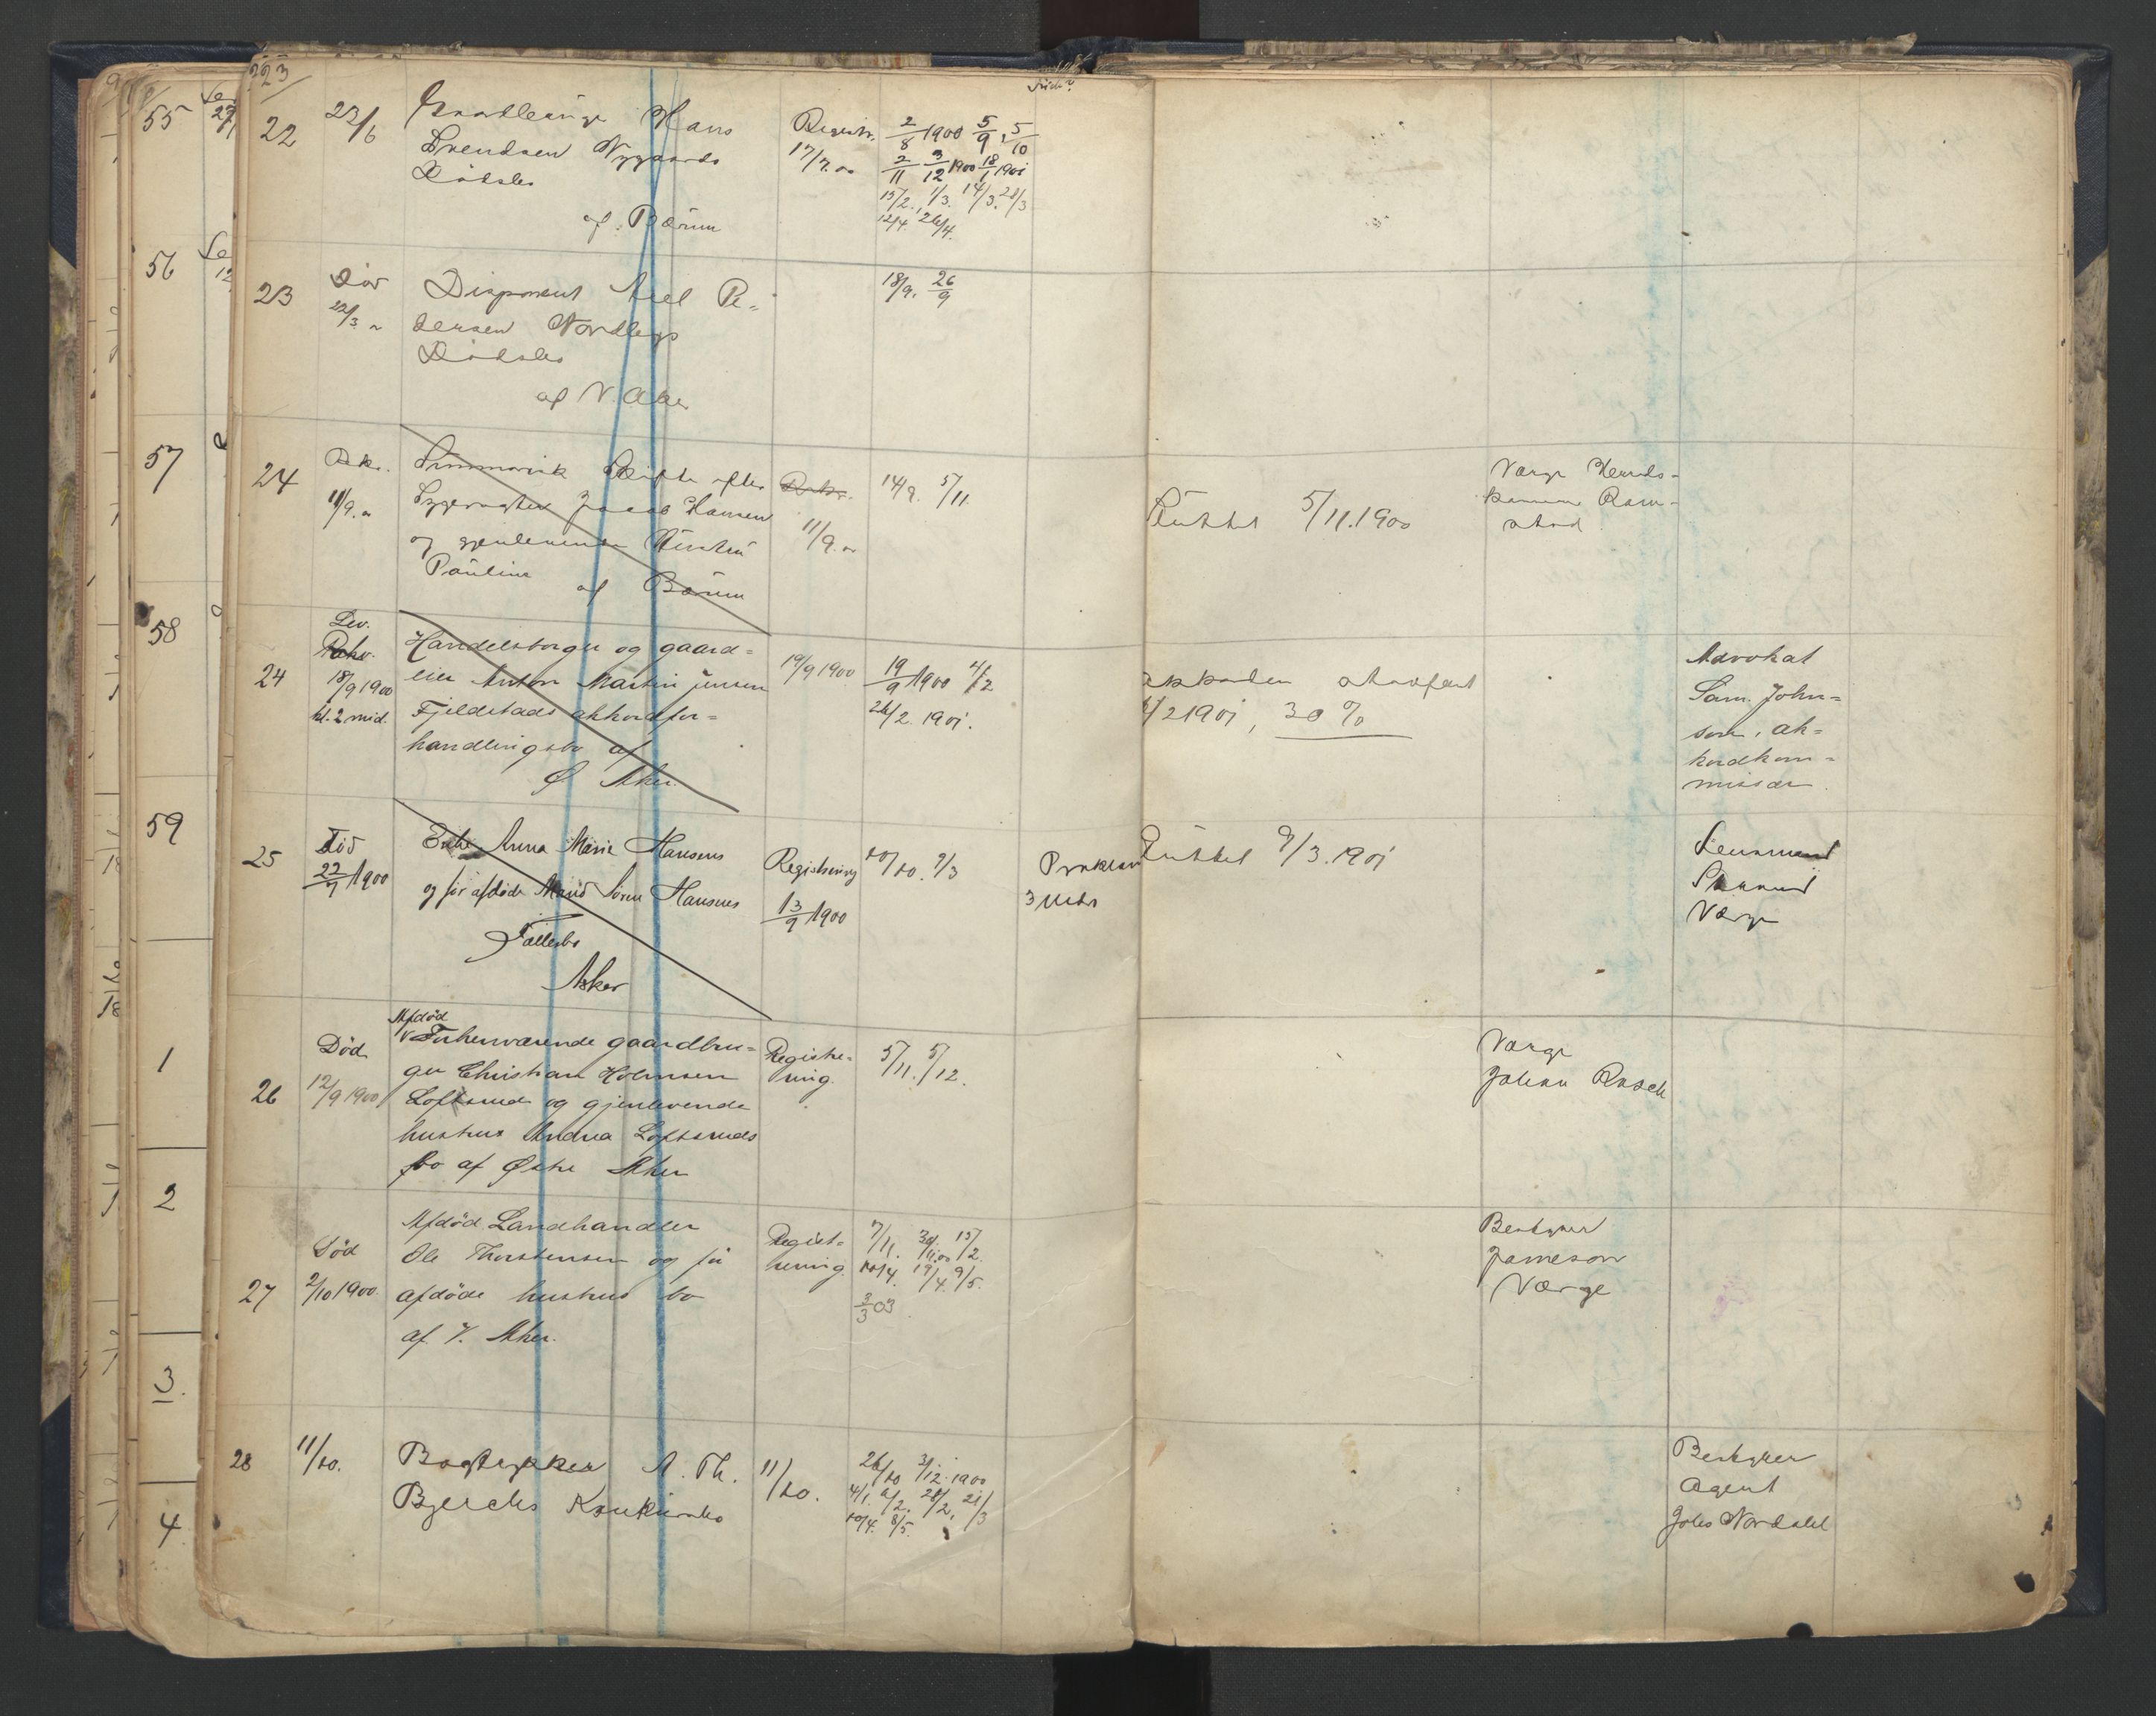 223
22
22/6
Hans
Svendsen Nygaards
Dödsbo
af Bærum
Registr.
17/7.00
2/8 1900 5/9, 5/10
2/11 3/12 1900 18/1 1901
15/2., 1/3. 14/3. 28/3
12/4. 26/4.
23
Död
22/3
Disponent Axel Pe-
dersen Nordbys
Dödsbo
af V. Aker
18/9. 26/9
24
Rekv.
11/9.00
Summarisk Skifte efter
Jacob Hansen
og gjenlevende Hustru
Pauline
af Bærum
Rekv.
11/9.00
14/9. 5/11.
Sluttet 5/11.1900
Værge Herreds-
kasserer Ram-
stad
24
Lev.
Rekv.
18/9 1900
kl. 2 mid.
Handelsborger og gaard-
eier Anton Martin Jensen
Fjeldstads akkordfor-
handlingsbo af
Ø Aker.
19/9 1900
19/9 1900 4/2
26/2. 1901.
akkorden stadfæst
4/2 1901, 30 %
Advokat
Sam. John-
son, ak-
kordkom-
missær.
25
Död
22/7 1900
Enke Anna Marie Hansens
og før afdøde Mand Søren Hansens
Fællesbo
Asker
Registrering
13/9 1900
10/10. 9/3
Proklam
3 Mdrs
Sluttet 9/3.1901
Lensmand
Værge
26
Død
12/9 1900
Afdød
Forhenværende gaardbru-
ger Christian Holmsen
Loftsrud og gjenlevende
hustrus Andrea Loftsruds
bo af Østre Aker
Registre-
ring.
5/11. 5/12.
Værge
Johan Rasch
27
Död
2/10 1900.
Afdöd Landhandler
Ole Thorstensen og før
afdöde hustrus bo
af V. Aker.
Regist-
rering.
7/11. 30/11.00 15/2.
10/4. 19/4. 9/5.
3/3 03
Bestyrer
Jameson
Værge
28
11/10.
Bogtrykker A. Th.
Bjerchs Konkursbo
11/10.
26/10 3/12.1900
4/1. 6/2. 28/2, 21/3
10/4. 8/5.
Bestyrer
Agent
Johs Nordahl
55
56
57
58
59
1
2
3.
4